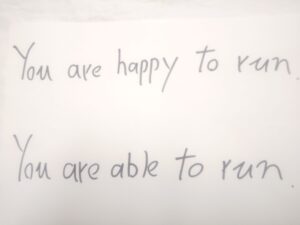 You are happy to run.
You are able to run.